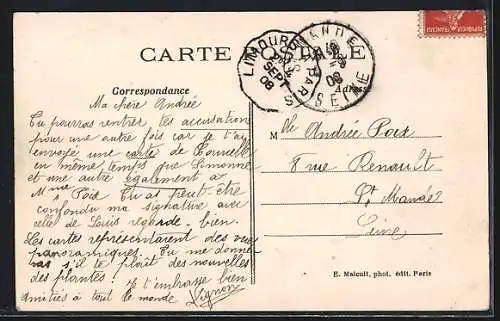 CARTE POSTALE
LIMOURS
SEPT
08
SEINE
REPUBLIQUE FRANCAISE
Correspondance
Adresse
Ma chère Andrée
Tu pourras rentrer tes accusation
pour une autre fois car je t'ai
envoyé une carte de
en même temps que Simonne
et une autre également à
Mme Poix Tu as peut être
confondu ma signature avec
celle de Louis regarde bien.
Les cartes représentaient des vues
panoramiques. Tu me donne-
ras s'il te plaît des nouvelles
des plantes! Je t'embrasse bien
amitiés à tout le monde
Mlle Andrée Poix
8 rue Renault
St. Mandé
Seine
E. Malcuit, phot. édit. Paris